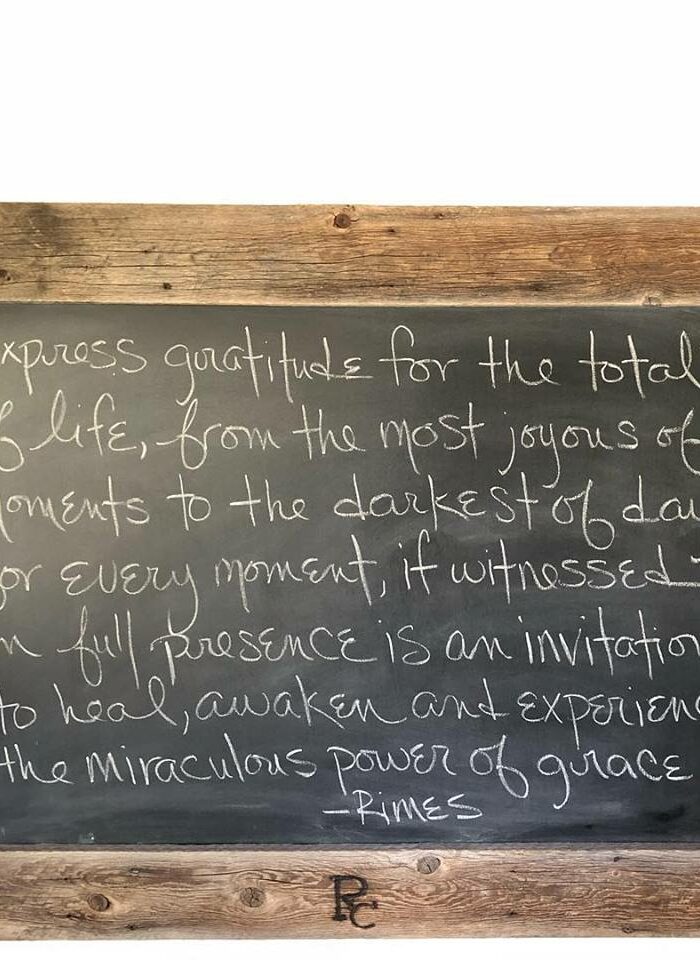 xpress gratitude for the total
f life, from the most joyous of
oments to the darkest of da
or every moment, if witnessed
n full presence is an invitation
to heal, awaken and experienc
the miraculous power of grace
-Rimes
RC